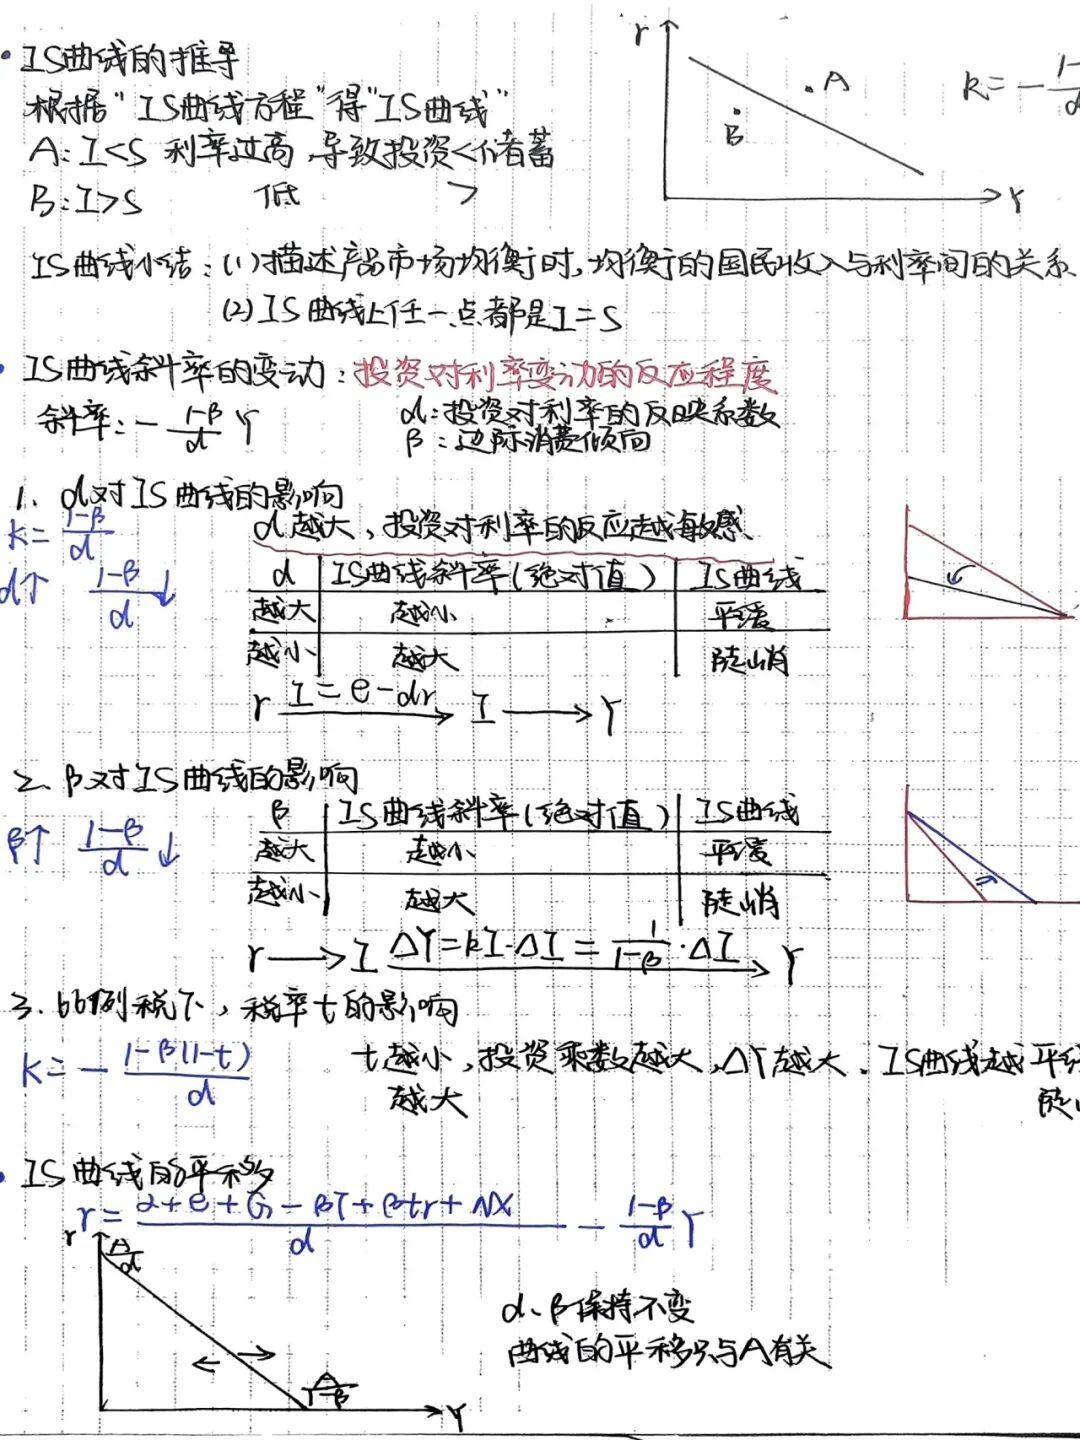 · IS曲线的推导
根据"IS曲线方程"得"IS曲线"
A: I<S 利率过高,导致投资<储蓄
B: I>S 低 >
r
A
B
Y
k=-
IS曲线小结: (1)描述产品市场均衡时,均衡的国民收入与利率间的关系
(2)IS曲线上任一点都是I=S
· IS曲线斜率的变动: 投资对利率变动的反应程度
斜率: - (1-β)/d Y d:投资对利率的反映系数
β:边际消费倾向
1. d对IS曲线的影响
k= (1-β)/d d越大,投资对利率的反应越敏感
d↑ (1-β)/d ↓
d IS曲线斜率(绝对值) IS曲线
越大 越小 平缓
越小 越大 陡峭
r I=e-dr I → Y
2. β对IS曲线的影响
β↑ (1-β)/d ↓
β IS曲线斜率(绝对值) IS曲线
越大 越小 平缓
越小 越大 陡峭
r → I ΔY=kI·ΔI= 1/(1-β) ·ΔI Y
3. 比例税下,税率t的影响
k=- (1-β(1-t))/d t越小,投资乘数越大,ΔY越大,IS曲线越平
越大
· IS曲线的平移
r= (α+e+G-βT+βtr+NX)/d - (1-β)/d Y
r
A/d
d、β保持不变
曲线的平移只与A有关
← →
A/(1-β)
Y